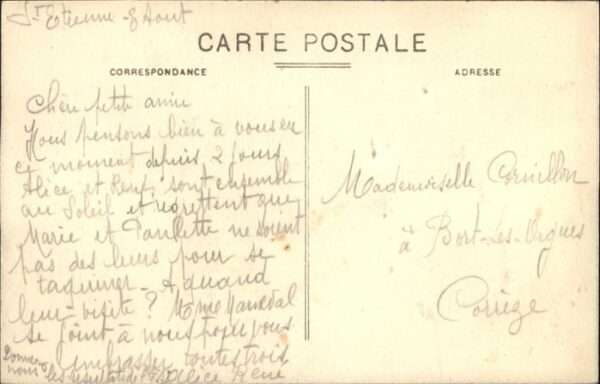 St Etienne 8 Aout
CARTE POSTALE
CORRESPONDANCE
Chère petite amie
Nous pensons bien à vous en
ce moment depuis 2 jours
Alice et René sont ensemble
au Soleil et regrettent que
Marie et Paulette ne soient
pas des leurs pour se
taquiner. A quand
leur visite ? Mme
se joint à nous pour vous
embrasser toutes trois
Donnez
nous les Alice René
ADRESSE
Mademoiselle Cornillon
à Bort-Les-Orgues
Corrèze